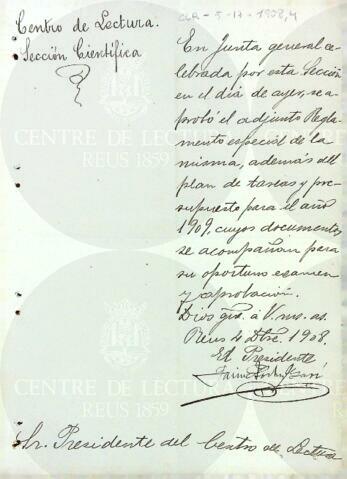 CLR-5-17-1908,4
Centro de Lectura.
Sección Científica
En Junta general ce-
lebrada por esta Sección
en el dia de ayer, se a-
probó el adjunto Regla-
mento especial de la
misma, además del
plan de tareas y pre-
supuesto para el año
1909, cuyos documentos
se acompañan para
su oportuno examen
y aprobación.
Dios gde. á V. ms. as.
Reus 4 Dbre. 1908.
El Presidente
Jaime
Sr. Presidente del Centro de Lectura
CENTRE DE LECTURA
REUS 1859
CENTRE DE LECTURA
REUS 1859